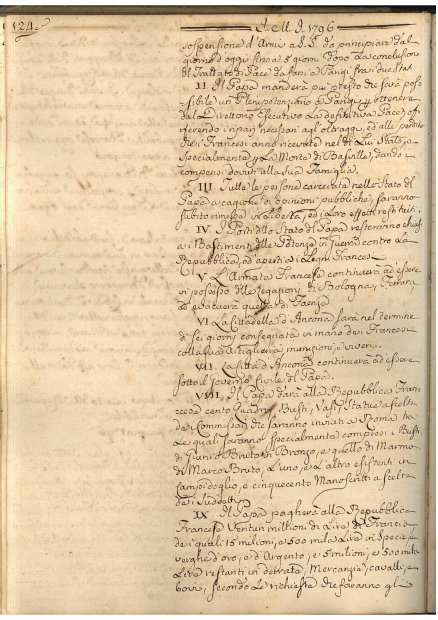 124
J. M. J. 1796
sospensione d'Armi a S. S. da principiare dal
giorno d'oggi fino a 5 giorni dopo la conclusione
di Trattato di Pace da farsi a Parigi fra i due Stati
II Il Papa manderà più presto che sarà pos=
=sibile un Plenipotenziario a Parigi p ottenere
dal Direttorio Esecutivo la definitiva Pace, of=
=ferendo i ripari necessari agl'oltraggi, ed alle perdite
che i Francesi anno ricevute nel di Lui Stato, e
specialmente p La Morte di Basville, dando i
compensi dovuti alla sua Famiglia.
III Tutte le persone carcerate nello Stato del
Papa a cagione di opinioni pubbliche, saranno
subito rimesse in Libertà, ed i Loro effetti restituiti
IV. I Porti dello Stato di Papa resteranno chiusi
a i Bastimenti delle Potenze in guerra contro La
Repubblica, ed aperti a i Legni Francesi
V. L'Armata Francese continuerà ad essere
in possesso delle Legazioni di Bologna, e Ferrara
ed evacuerà quella di Faenza
VI La Cittadella d'Ancona sarà nel termine
di sei giorni consegnata in mano dei Francesi
colla sua Artiglieria, munizioni, e viveri.
VII. La Città d'Ancona continuerà ad essere
sotto il governo Civile del Papa.
VIII. Il Papa darà alla Repubblica Fran=
=cese cento Quadri, Busti, Vasi, Statue a scelta
de i Commissari che saranno inviati a Roma tra
Le quali saranno specialmente compresi i Busti
di Giunio Bruto in Bronzo, e quello di Marmo
di Marco Bruto, L'uno, e L'altro esistenti in
Campidoglio, e cinquecento Manoscritti a scelta
de i suddetti.
IX Il Papa pagherà alla Repubblica
Francese Ventun millioni di Lire di Francia
de i quali 15 milioni, e 500 mila Lire in Specie, e
verghe d'oro, e d'Argento, e 5 milioni, e 500 mila
Lire restanti in derrate, Mercanzie, cavalli, e
bovi, secondo Le richieste che faranno gli